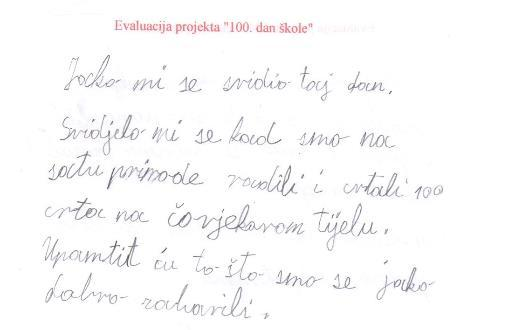 Evaluacija projekta "100. dan škole"
Jako mi se svidio taj dan.
Svidjelo mi se kad smo na
satu prirode radili i crtali 100
crta na čovjekovom tijelu.
Upamtit ću to što smo se jako
dobro zabavili.